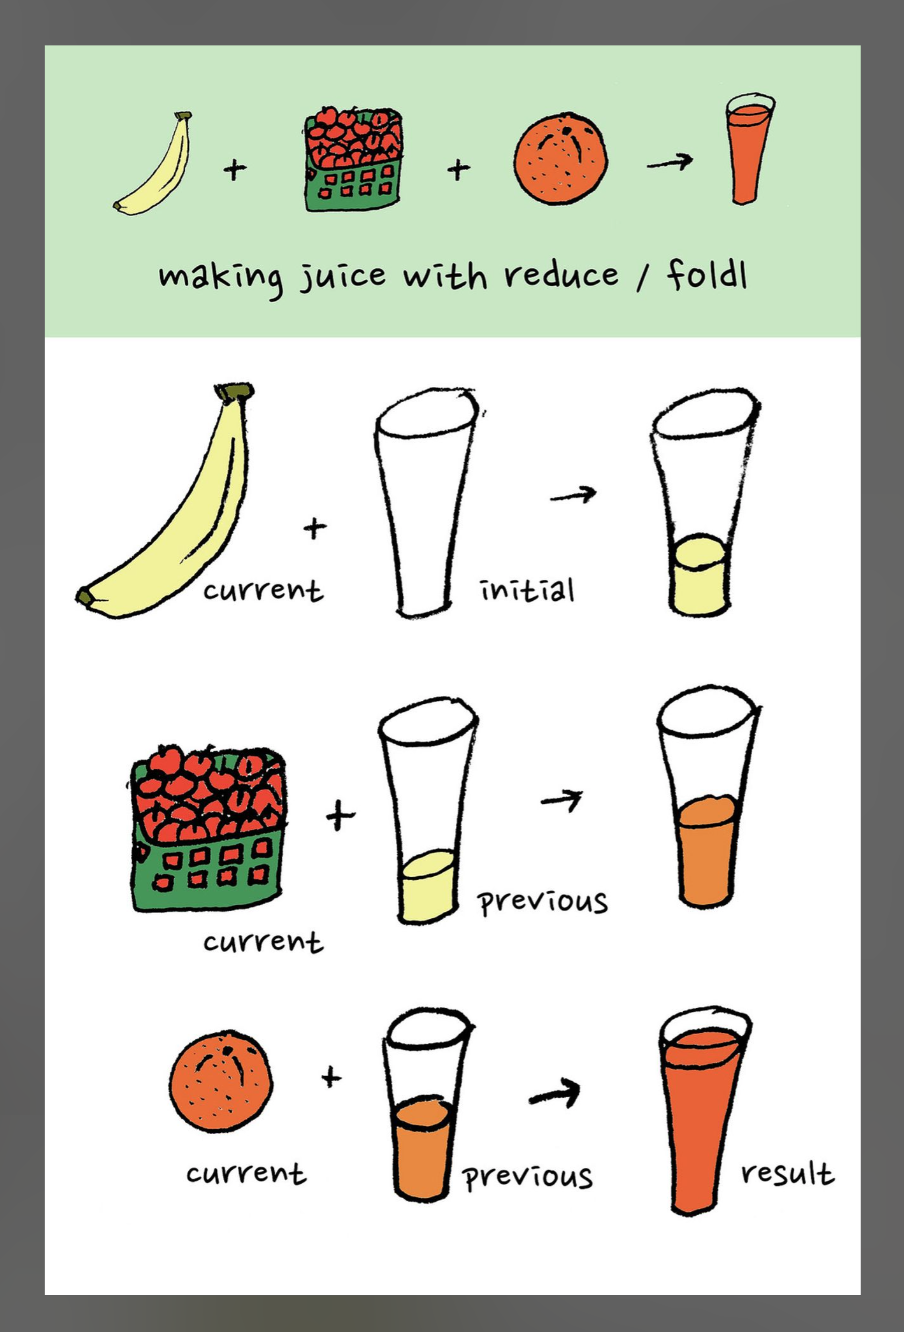 + + →
making juice with reduce / foldl
+ →
current initial
+ →
previous
current
+ →
current previous result